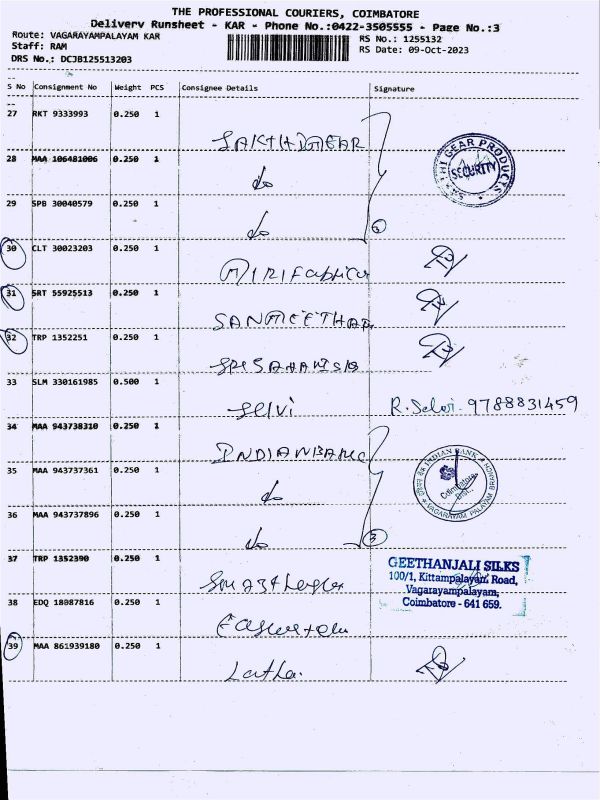 THE PROFESSIONAL COURIERS, COIMBATORE
Delivery Runsheet - KAR - Phone No.:0422-3505555 - Page No.:3
Route: VAGARAYAMPALAYAM KAR
RS No.: 1255132
Staff: RAM
RS Date: 09-Oct-2023
DRS No.: DCJB125513203
S No Consignment No Weight PCS Consignee Details Signature
27 RKT 9333993 0.250 1
28 MAA 106481006 0.250 1 do
GEAR PRODUCTS
SECURITY
29 SPB 30040579 0.250 1 do
30 CLT 30023203 0.250 1
31 SRT 55925513 0.250 1
32 TRP 1352251 0.250 1
33 SLM 330161985 0.500 1 Selvi R. Selvi. 9788831459
34 MAA 943738310 0.250 1 INDIANBANK
INDIAN BANK
Coimbatore Dist.
VAGARAYAM PALAYAM BRANCH
35 MAA 943737361 0.250 1 do
36 MAA 943737896 0.250 1 do 3
37 TRP 1352390 0.250 1
GEETHANJALI SILKS
100/1, Kittampalayam Road,
Vagarayampalayam,
Coimbatore - 641 659.
38 EDQ 18087816 0.250 1
39 MAA 861939180 0.250 1 Latha.